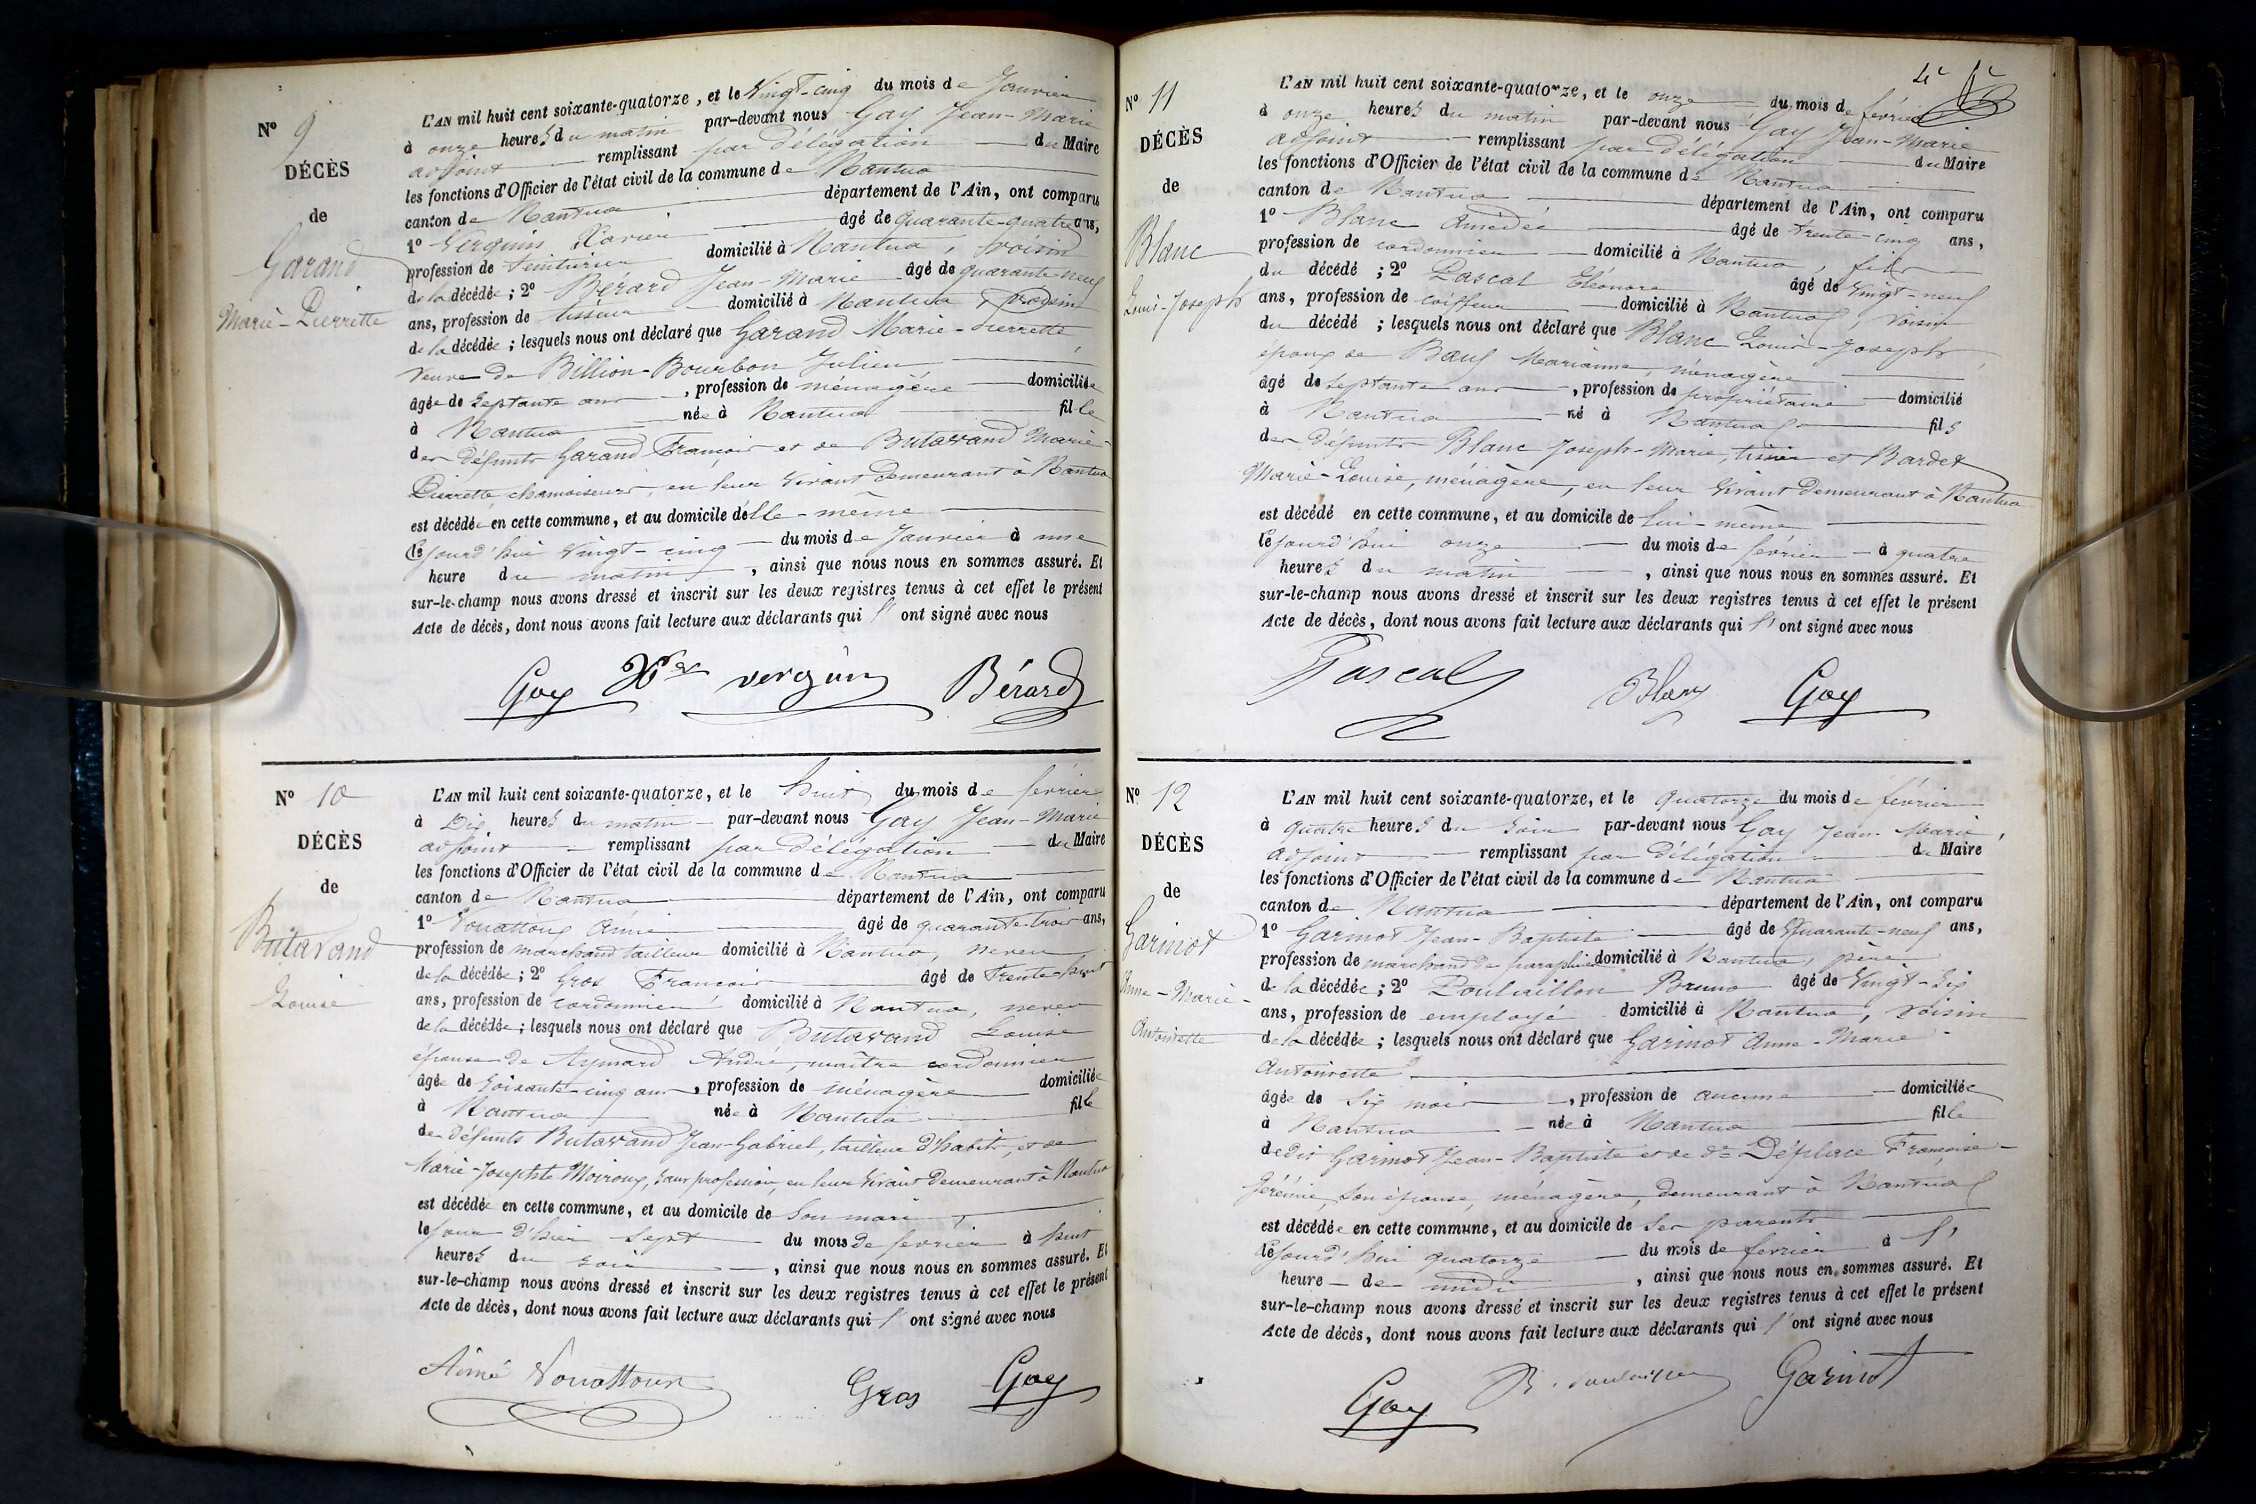 N° 9
DÉCÈS
de
Garand
Marie-Pierrette
L'AN mil huit cent soixante-quatorze, et le Vingt-cinq du mois de Janvier
à onze heures du matin par-devant nous Gay Jean-Marie
adjoint remplissant par délégation du Maire
les fonctions d'Officier de l'état civil de la commune de Nantua
canton de Nantua département de l'Ain, ont comparu
1° Verguin Xavier âgé de quarante-quatre ans,
profession de teinturier domicilié à Nantua, voisin
de la décédée; 2° Bérard Jean-Marie âgé de quarante-neuf
ans, profession de tisseur domicilié à Nantua,
de la décédée; lesquels nous ont déclaré que Garand Marie-Pierrette,
veuve de Billion-Bourbon Julien
âgée de septante ans, profession de ménagère domiciliée
à Nantua née à Nantua fille
des défunts Garand François et de Butavand Marie-
Pierrette chamoiseurs, en leur vivant demeurant à Nantua
est décédée en cette commune, et au domicile d'elle-même
le jourd'hui vingt-cinq du mois de Janvier à une
heure du matin, ainsi que nous nous en sommes assuré. Et
sur-le-champ nous avons dressé et inscrit sur les deux registres tenus à cet effet le présent
Acte de décès, dont nous avons fait lecture aux déclarants qui l' ont signé avec nous
Gay Xer verguin Bérard
N° 10
DÉCÈS
de
Butavand
Louise
L'AN mil huit cent soixante-quatorze, et le huit du mois de février
à Dix heures du matin par-devant nous Gay Jean-Marie
adjoint remplissant par délégation du Maire
les fonctions d'Officier de l'état civil de la commune de Nantua
canton de Nantua département de l'Ain, ont comparu
1° Vouattoux Aimé âgé de quarante-trois ans,
profession de marchand tailleur domicilié à Nantua, neveu
de la décédée; 2° Gros François âgé de trente-huit
ans, profession de cordonnier domicilié à Nantua, neveu
de la décédée; lesquels nous ont déclaré que Butavand Louise
épouse de Aymard André, maître cordonnier
âgée de soixante-cinq ans, profession de ménagère domiciliée
à Nantua née à Nantua fille
des défunts Butavand Jean-Gabriel, tailleur d'habits, et de
Marie-Josephte Moiroux, sans profession, en leur vivant demeurant à Nantua
est décédée en cette commune, et au domicile de son mari,
le jour d'hier sept du mois de février à huit
heures du soir, ainsi que nous nous en sommes assuré. Et
sur-le-champ nous avons dressé et inscrit sur les deux registres tenus à cet effet le présent
Acte de décès, dont nous avons fait lecture aux déclarants qui l' ont signé avec nous
Aimé Vouattoux Gros Gay
N° 11
DÉCÈS
de
Blanc
Louis-Joseph
L'AN mil huit cent soixante-quatorze, et le onze du mois de février
à onze heures du matin par-devant nous Gay Jean-Marie
adjoint remplissant par délégation du Maire
les fonctions d'Officier de l'état civil de la commune de Nantua
canton de Nantua département de l'Ain, ont comparu
1° Blanc Amédée âgé de trente-cinq ans,
profession de cordonnier domicilié à Nantua, fils
du décédé; 2° Pascal Eléonore âgé de vingt-neuf
ans, profession de coiffeur domicilié à Nantua, voisin
du décédé; lesquels nous ont déclaré que Blanc Louis-Joseph,
époux de Bœuf Marianne, ménagère
âgé de septante ans, profession de propriétaire domicilié
à Nantua né à Nantua fils
des défunts Blanc Joseph-Marie, et Bardet
Marie-Louise, ménagère, en leur vivant demeurant à Nantua
est décédé en cette commune, et au domicile de lui-même
le jourd'hui onze du mois de février à quatre
heures du matin, ainsi que nous nous en sommes assuré. Et
sur-le-champ nous avons dressé et inscrit sur les deux registres tenus à cet effet le présent
Acte de décès, dont nous avons fait lecture aux déclarants qui l' ont signé avec nous
Pascal Blanc Gay
N° 12
DÉCÈS
de
Garinot
Anne-Marie-
Antoinette
L'AN mil huit cent soixante-quatorze, et le quatorze du mois de février
à quatre heures du soir par-devant nous Gay Jean-Marie,
adjoint remplissant par délégation du Maire
les fonctions d'Officier de l'état civil de la commune de Nantua
canton de Nantua département de l'Ain, ont comparu
1° Garinot Jean-Baptiste âgé de Quarante-neuf ans,
profession de marchand de parapluies domicilié à Nantua, père
de la décédée; 2° Poulaillon Bruno âgé de Vingt-six
ans, profession de employé domicilié à Nantua, voisin
de la décédée; lesquels nous ont déclaré que Garinot Anne-Marie-
Antoinette
âgée de six mois, profession de aucune domiciliée
à Nantua née à Nantua fille
de dit Garinot Jean-Baptiste et de de Déplace Françoise-
Jérémie, son épouse, ménagère, demeurant à Nantua
est décédée en cette commune, et au domicile de ses parents
le jourd'hui quatorze du mois de février à l'
heure de midi, ainsi que nous nous en sommes assuré. Et
sur-le-champ nous avons dressé et inscrit sur les deux registres tenus à cet effet le présent
Acte de décès, dont nous avons fait lecture aux déclarants qui l' ont signé avec nous
Gay Garinot